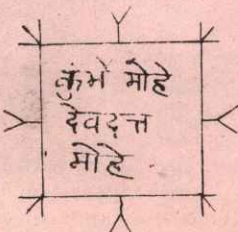 कुंमें मोहे
देवदत्त
मोहे